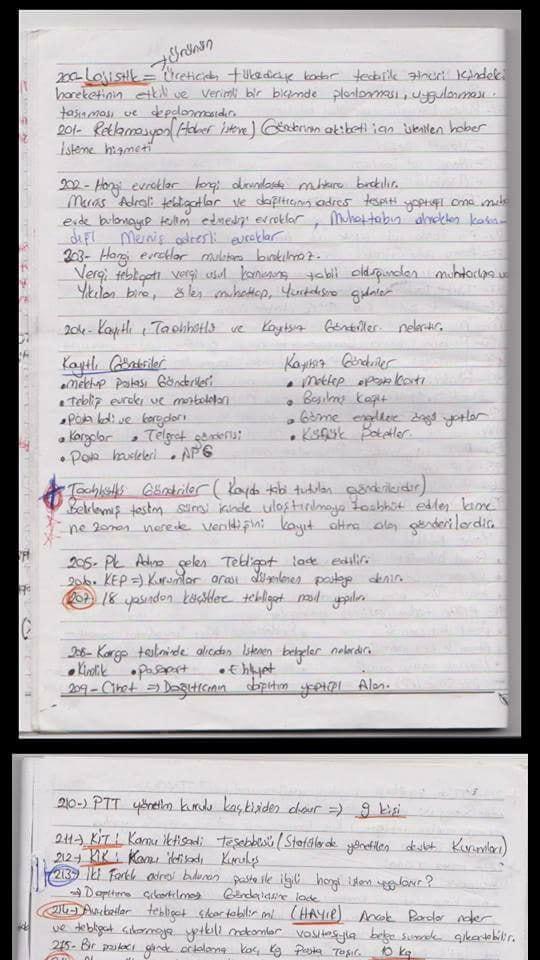 ürünün
200- Lojistik = Üreticiden tüketiciye kadar tedarik zinciri içindeki
hareketinin etkili ve verimli bir biçimde planlanması, uygulanması.
taşınması ve depolanmasıdır.
201- Reklamasyon (Haber isteme) Gönderinin akibeti için istenilen haber
isteme hizmeti
202- Hangi evraklar hangi durumlarda muhtara bırakılır.
Mernis Adresli tebligatlar ve dağıtıcının adres tespiti yaptığı ama
evde bulamayıp teslim edmediği evraklar, Muhattabın almaktan
Mernis adresli evraklar
203- Hangi evraklar muhtara bırakılmaz.
Vergi tebligatı vergi usul kanununa tabii olduğundan muhtarlığa
Yıkılan bina, ölen muhattap, Yurtdışına gidenler
204- Kayıtlı, Taahhütlü ve Kayıtsız Gönderiler nelerdir.
Kayıtlı Gönderiler
• mektup postası Gönderileri
• tebliğ evrakı ve mazbataları
• Posta koli ve kargoları
• Kargolar • Telgraf gönderisi
• Posta havaleleri • APG
Kayıtsız Gönderiler
• Mektep • Posta Kartı
• Basılmış Kağıt
• Görme engellilere özgü yazılar
• Küçük Paketler.
Taahhütlü Gönderiler (Kayda tabi tutulan gönderilerdir)
Belirlenmiş teslim süresi içinde ulaştırılmaya taahhüt edilen kime
ne zaman nerede verildiğini kayıt altına alan gönderilerdir.
205- PK Adına gelen Tebligat iade edilir.
206- KEP => Kurumlar arası düzenlenen postaya denir.
207- 18 yaşından küçüklere tebligat nasıl yapılır.
208- Kargo tesliminde alıcıdan istenen belgeler nelerdir.
• Kimlik • Pasaport • Ehliyet
209- Cihet => Dağıtıcının dağıtım yaptığı Alan.
210-) PTT yönetim kurulu kaç kişiden oluşur => 9 kişi
211-) KİT: Kamu iktisadi Teşebbüsü (Statülerde yönetilen devlet kurumları)
212-) KİK: Kamu iktisadı Kuruluş
213- İki Farklı adresi bulunan posta ile ilgili hangi işlem uygulanır?
=> Dağıtıma çıkartılmaz Göndericisine iade
214- Avukatlar tebligat çıkartabilir mi (HAYIR) Ancak Barolar noter
ve tebligat çıkarmaya yetkili makamlar vasıtasıyla belge sunarak çıkartabilir.
215- Bir postacı günde ortalama kaç kg Posta Taşır. 10 kg